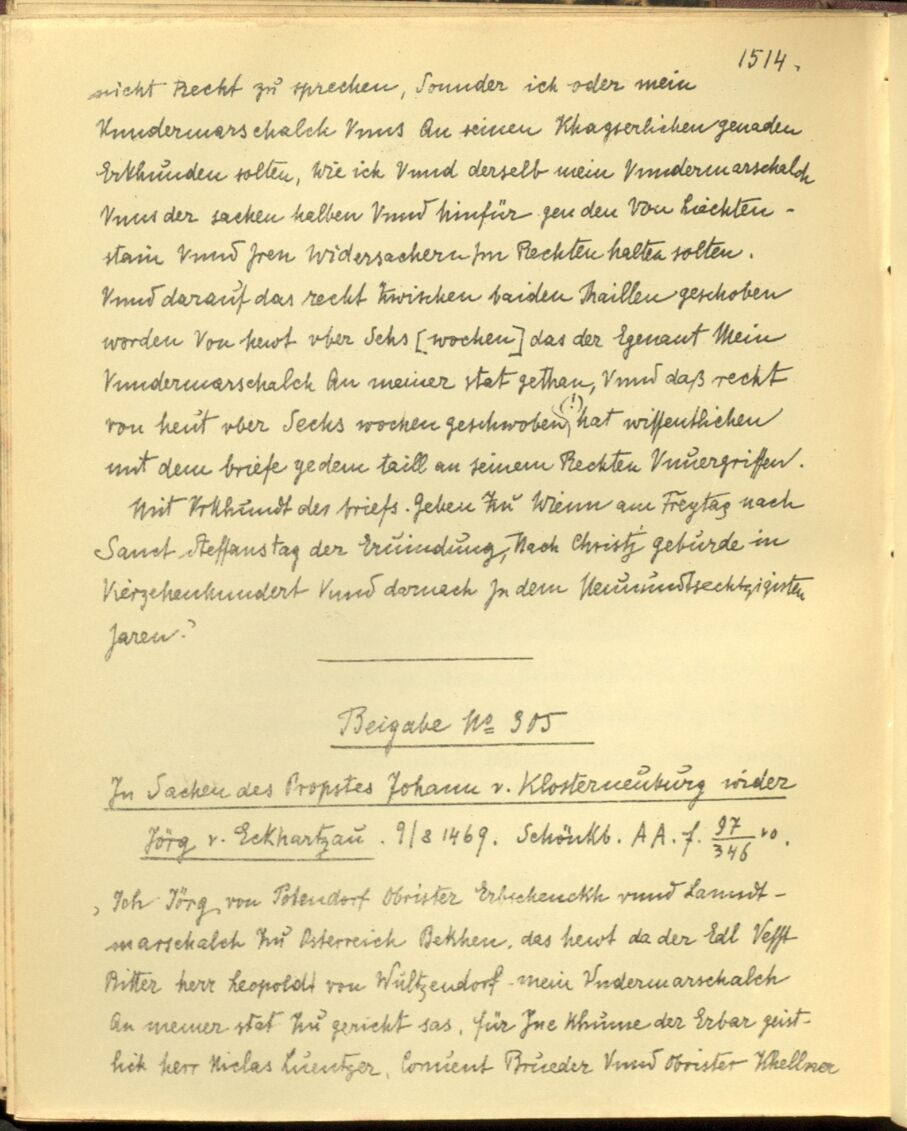 1514.
nicht Recht zu sprechen, Sonnder ich oder mein
Vnndermarschalch Vnns An seinen Khayserlichen genaden
Erkhunden solten, Wie ich Vnnd derselb mein Vnndermarschalch
Vnns der sachen halben Vnnd hinfür gen den Von Liechten-
stain Vnnd Jren Widersachern Jm Rechten halten solten.
Vnnd darauf das recht Zwischen baiden Thaillen geschoben
worden Von hewt vber Sehs [wochen] das der Egenant Mein
Vnndermarschalch An meiner stat gethan, Vnnd daß recht
von heut vber Sechs wochen geschwoben (!), hat wissentlichen
mit dem briefe yedem taill an seinem Rechten Vnuergriffen.
Mit Vrkhundt des briefs. Geben Zu Wienn am Freytag nach
Sanct Steffanstag der Eruindung, Nach Christj geburde in
Vierzehenhundert Vnnd darnach Jn dem Neunundtsechtzigisten
Jaren."
Beigabe No 305
In Sachen des Propstes Johann v. Klosterneuburg wider
Jörg v. Eckhartzau. 9/8 1469. Schönkb. A A. f. 97/346 vo.
"Ich Jörg von Potendorf Obrister Erbschenckh vnnd Lanndt-
marschalch Zu Osterreich Bekhen, das hewt da der Edl Vesst
Ritter herr Leopoldt von Wultzendorf mein Vndermarschalch
An meiner stat Zu gericht sas, für Jne Khume der Erbar geist-
lich herr Niclas Luentzer, Conuent Brueder Vnnd Obrister Khellner